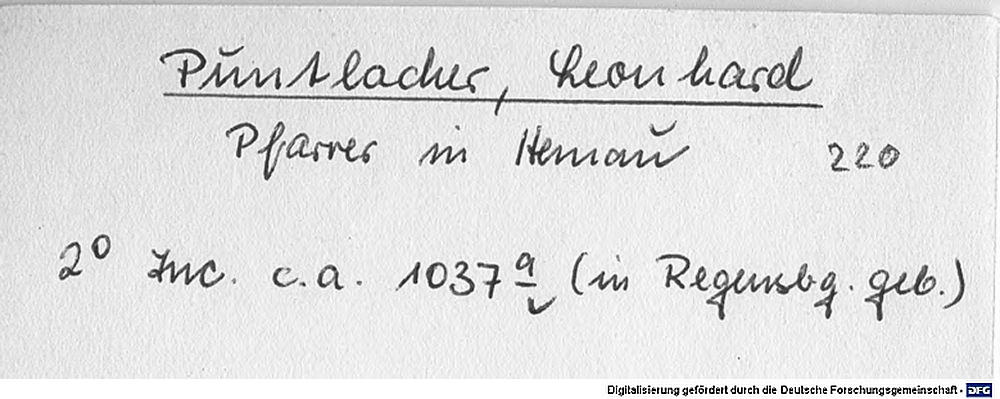 Puntlacher, Leonhard
Pfarrer in Hemau 220
2° Inc. c.a. 1037 a (in Regensbg. geb.)
Digitalisierung gefördert durch die Deutsche Forschungsgemeinschaft - DFG